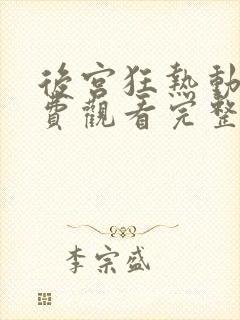 後宮狂熱動
費觀看完整
李宗盛